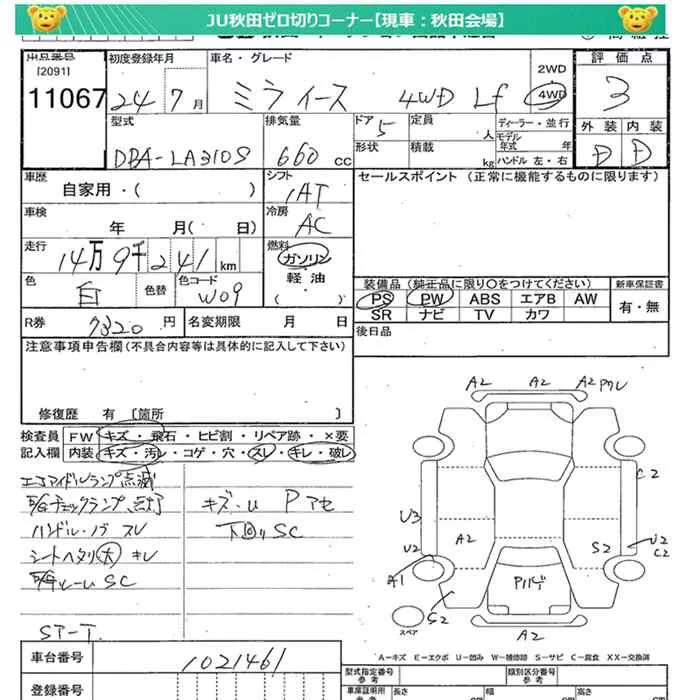 JU秋田ゼロ切りコーナー【現車：秋田会場】
出品番号
[2091]
11067
初度登録年月
24 7月
車名・グレード
ミライース 4WD Lf
2WD
4WD
評価点
3
外装 内装
D D
型式
DBA-LA310S
排気量
660 cc
ドア
5
形状
定員
人
積載
kg
ディーラー・並行
モデル
年式 年
ハンドル 左・右
車歴
自家用・( )
シフト
IAT
セールスポイント (正常に機能するものに限ります)
車検
年 月( 日)
冷房
AC
走行
14万9千241km
燃料
ガソリン
軽油
( )
色
白
色替
色コード
W09
装備品 (純正品に限り○をつけてください)
新車保証書
PS PW ABS エアB AW
有・無
SR ナビ TV カワ
R券 7320 円
名変期限 月 日
後日品
注意事項申告欄(不具合内容等は具体的に記入して下さい)
修復歴 有 [箇所 ]
検査員
記入欄
FW キズ・飛石・ヒビ割・リペア跡・×要
内装 キズ・汚レ・コゲ・穴・スレ・キレ・破レ
エコアイドルランプ点滅
チェックランプ点灯
ハンドル・ノブ スレ
シートヘタリ(大) キレ
ルーム SC
ST-T
キズ・U Pアセ
下回りSC
A2 A2 A2 Pクレ
C2
U3
U2
A2
S2
U2
C2
A1
S2
A2
スペア
A…キズ E…エクボ U…凹み W…補修跡 S…サビ C…腐食 XX…交換済
車台番号
1021461
登録番号
型式指定番号
参考
類別区分番号
参考
車庫証明用
長さ
幅
高さ